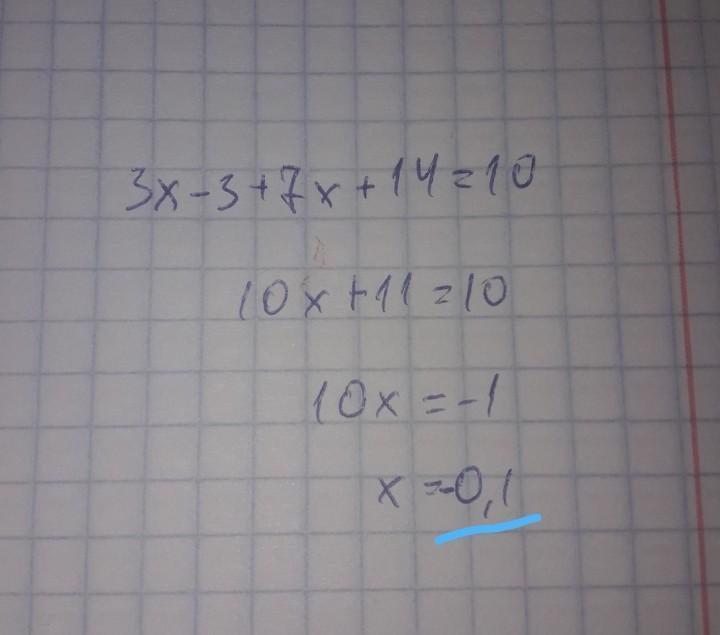 3x-3+7x+14=10
10x+11=10
10x=-1
x=-0,1